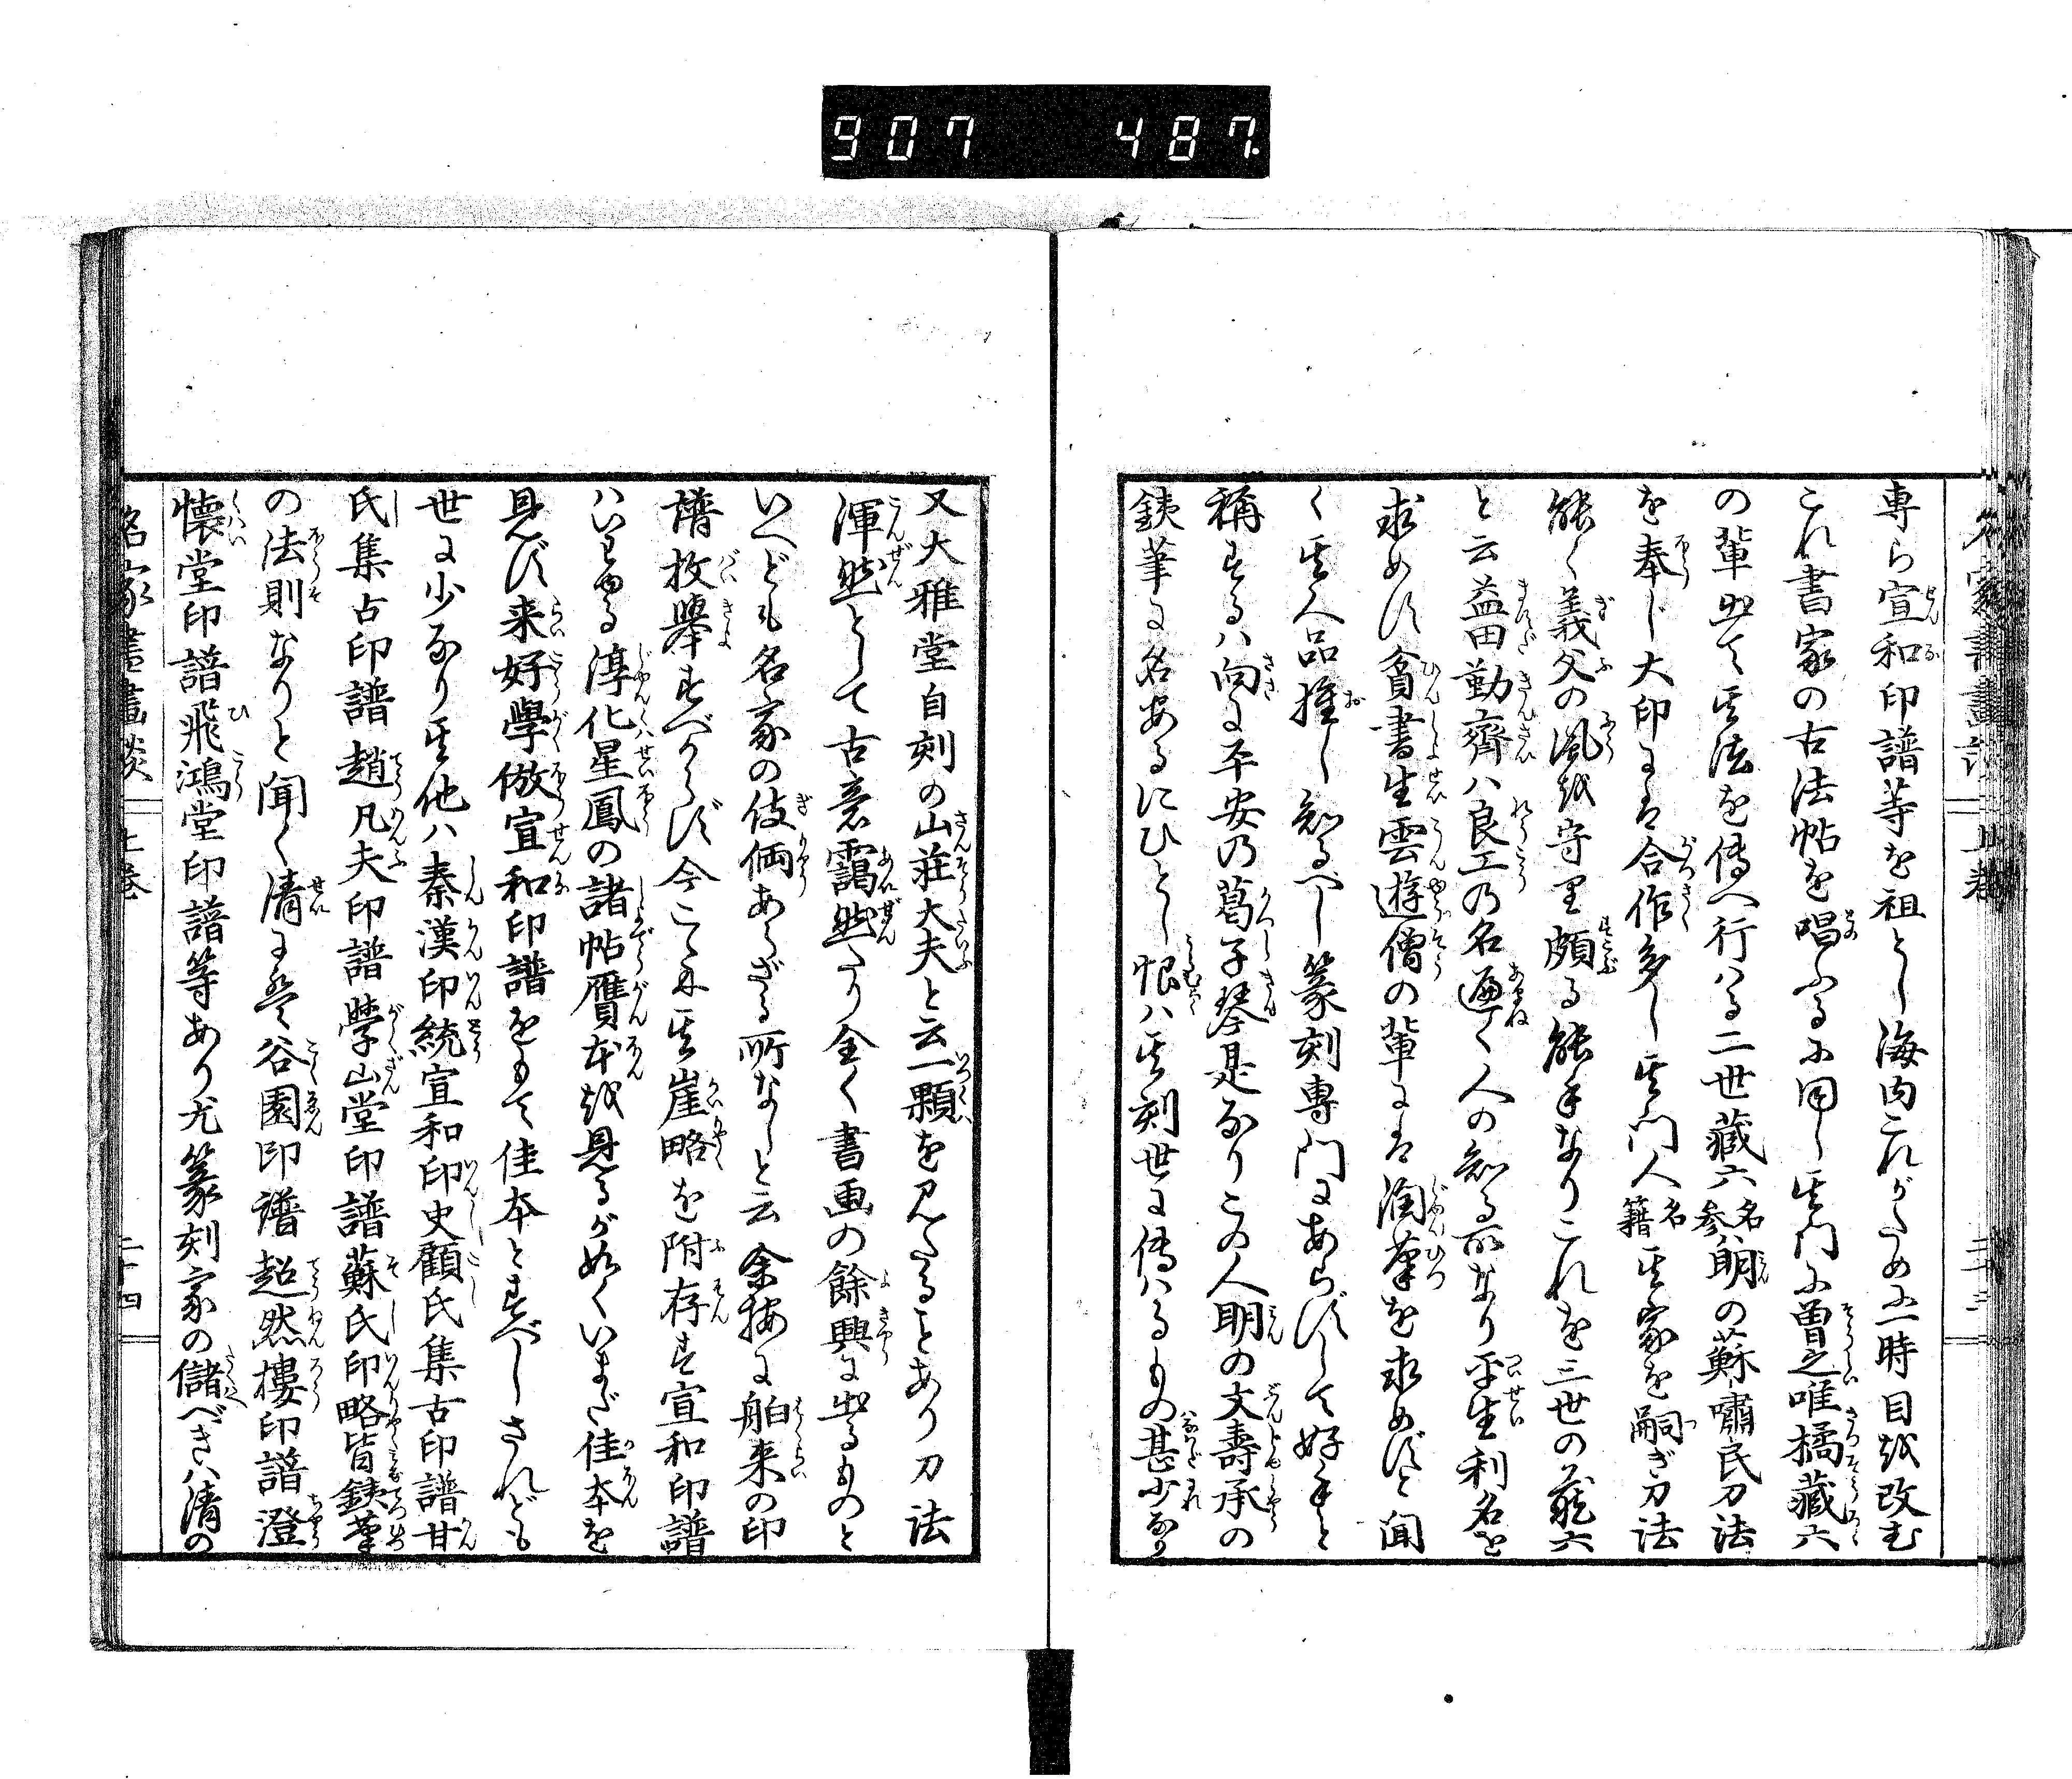 907 487
専ら宣和印譜等を祖とし海内これがために一時目を改む
これ書家の古法帖を唱ふるに同し其門に曽之唯橘蔵六
の輩出て其法を傳へ行はる二世蔵六名参明の蘇嘯民刀法
を奉じ大印には合作多し其門人名籍其家を嗣ぎ刀法
能く義父の風を守り頗る能手なりこれを三世の蔵六
と云益田勤齋ハ良工の名遍く人の知る所なり平生利名を
求めず貧書生雲遊僧の輩には潤筆を求めずと聞
く其人品推し知るべし篆刻専門にあらずして好手と
称するハ向に平安の葛子琴是なりこの人明の文壽承の
銕筆に名あるにひとし恨ハ其刻世に傳ハるもの甚少なり
名家書畫談 上巻 二十三
又大雅堂自刻の山荘大夫と云一顆を見たることあり刀法
渾然として古意靄然たり全く書画の餘興に出るものと
いへども名家の伎倆あらざる所なしと云余按に舶来の印
譜枚擧すべからず今こゝに其崖略を附存す宣和印譜
ハいはゆる淳化星鳳の諸帖贋本を見るが如くいまだ佳本を
見ず来好學倣宣和印譜をもて佳本とすべしされども
世に少なり其他ハ秦漢印統宣和印史顧氏集古印譜甘
氏集古印譜趙凡夫印譜學山堂印譜蘇氏印略皆銕筆
の法則なりと聞く清に至て谷園印譜超然樓印譜澄
懐堂印譜飛鴻堂印譜等あり尤篆刻家の儲べきハ清の
名家書畫談 上巻 二十四